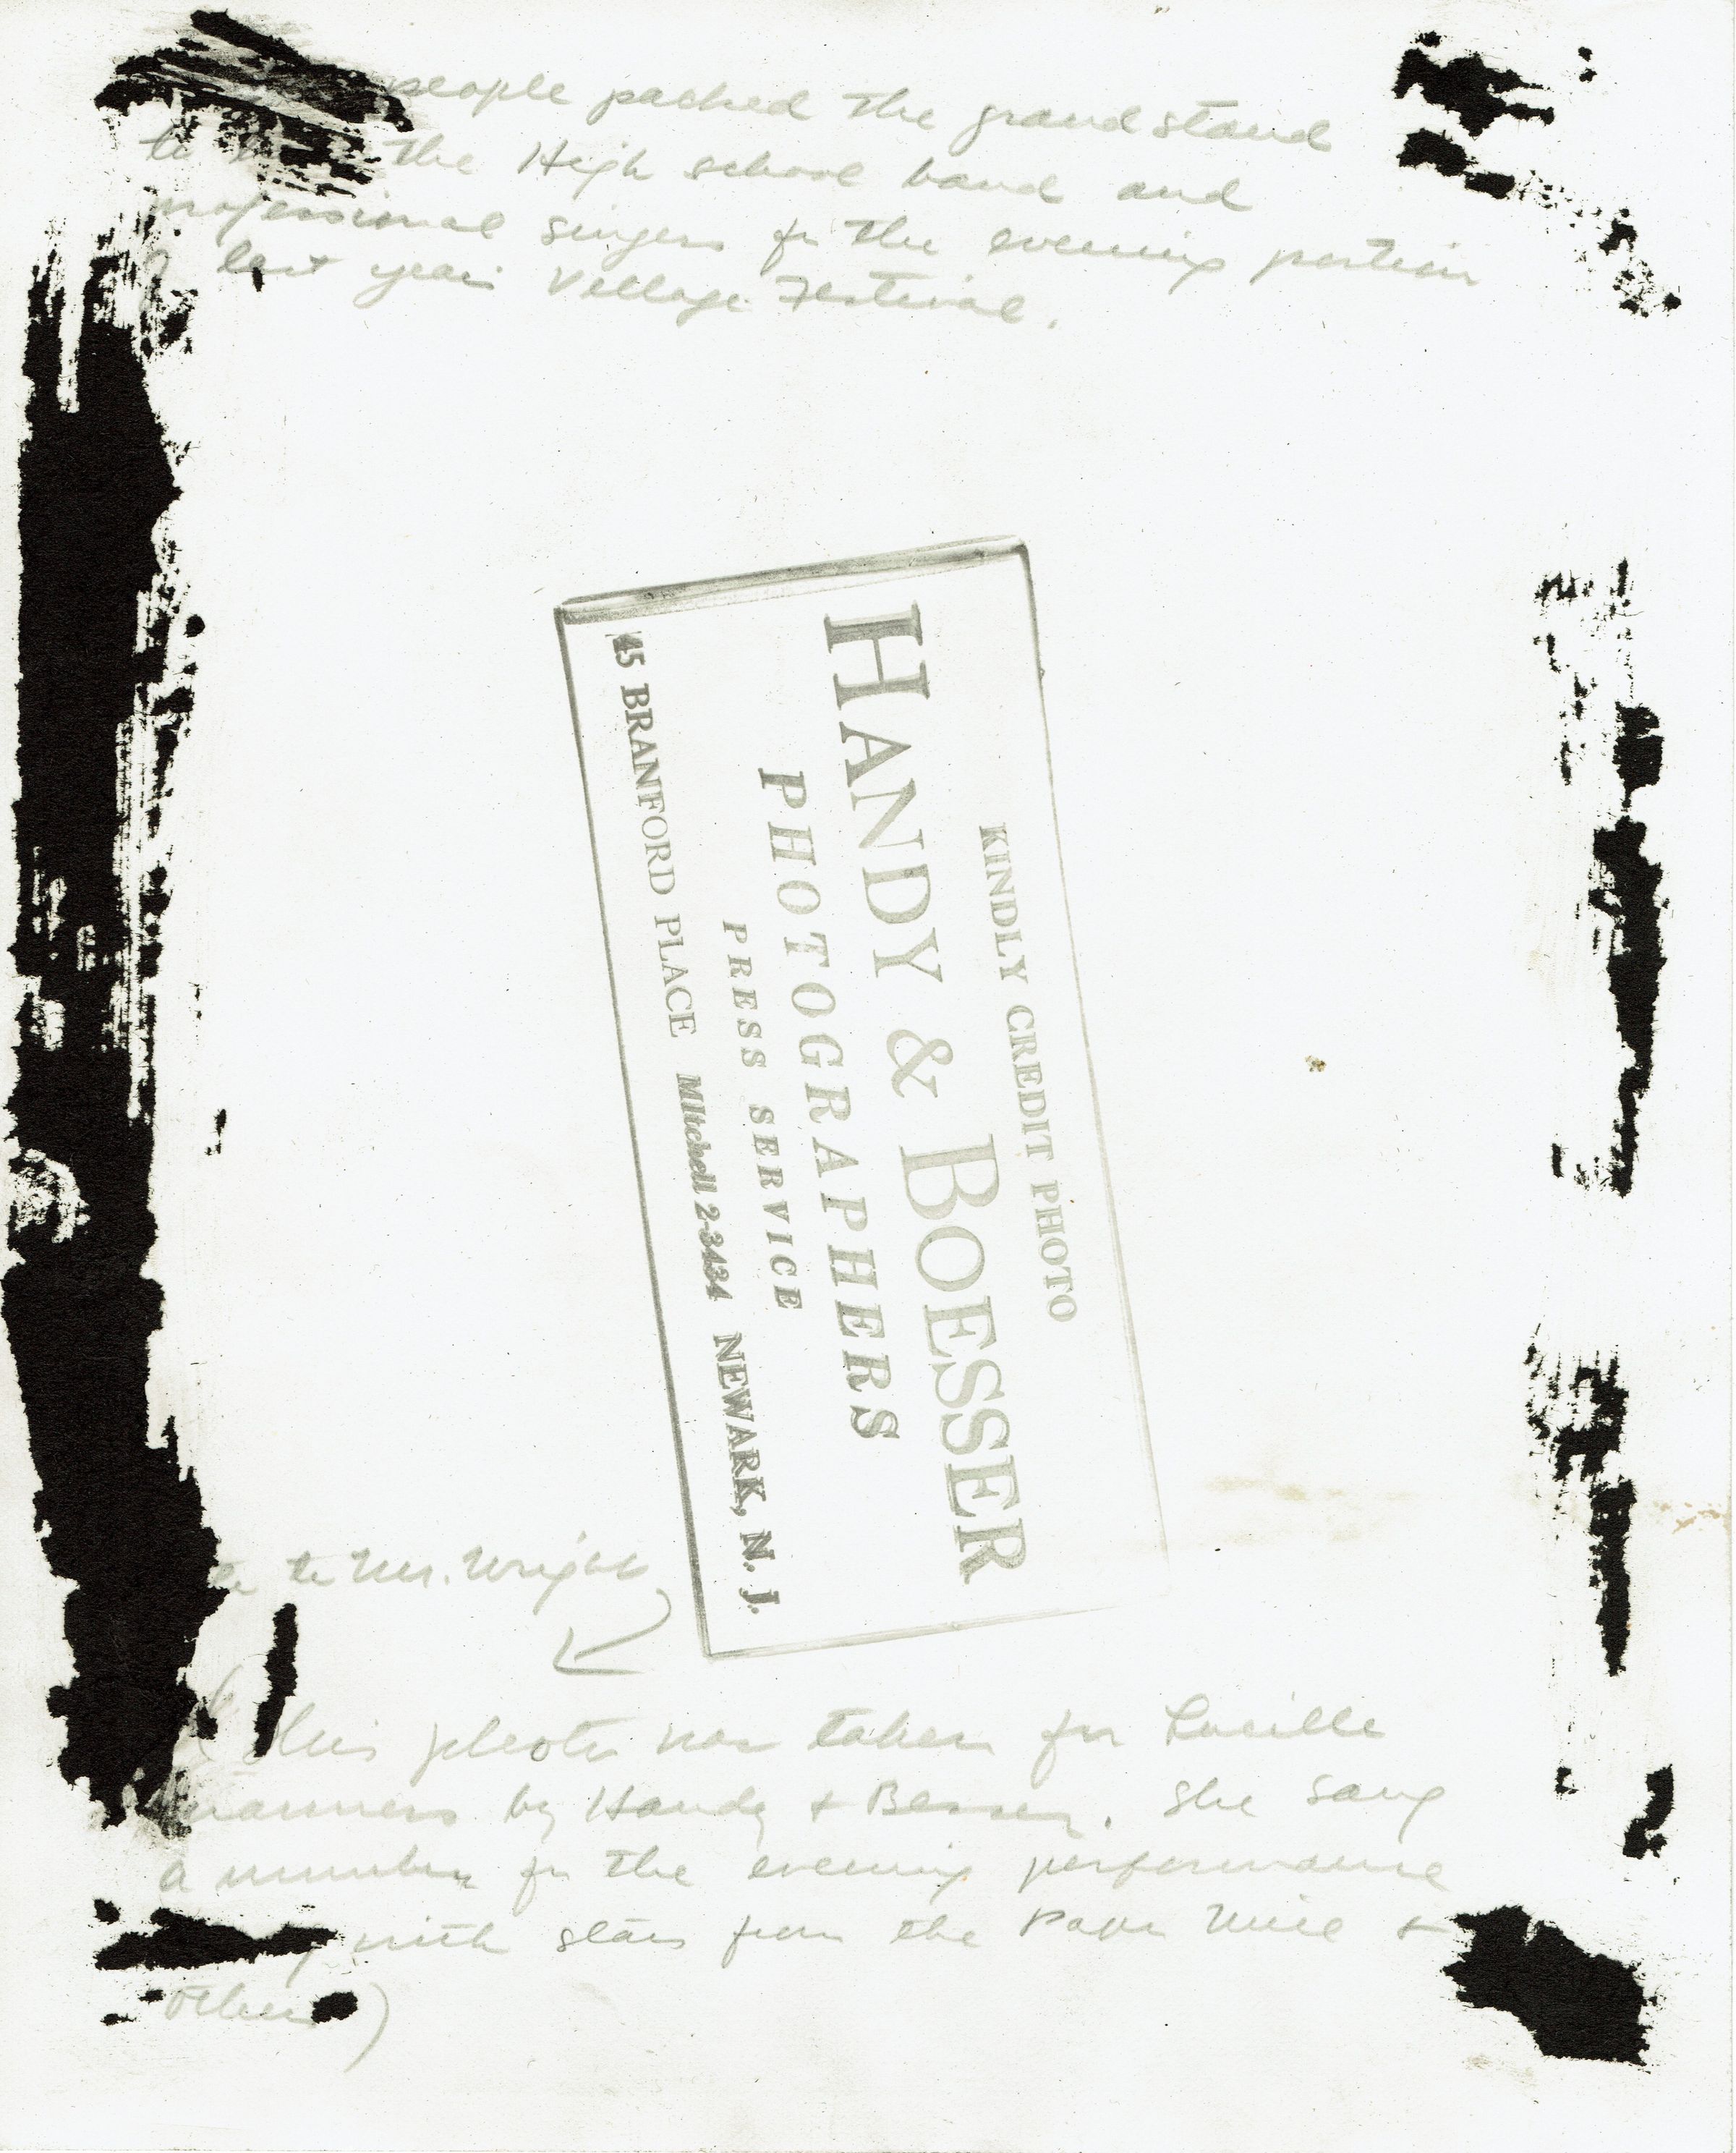 people packed the grandstand
to the High school band and
professional singers for the evening portion
last year Village Festival.
KINDLY CREDIT PHOTO
HANDY & BOESSER
PHOTOGRAPHERS
PRESS SERVICE
45 BRANFORD PLACE MItchell 2-3434 NEWARK, N. J.
to Mr. Wright
This photo was taken for Lucille
Manners by Handy + Besser. She sang
a number for the evening performance
with stars from the Paper Mill +
others)